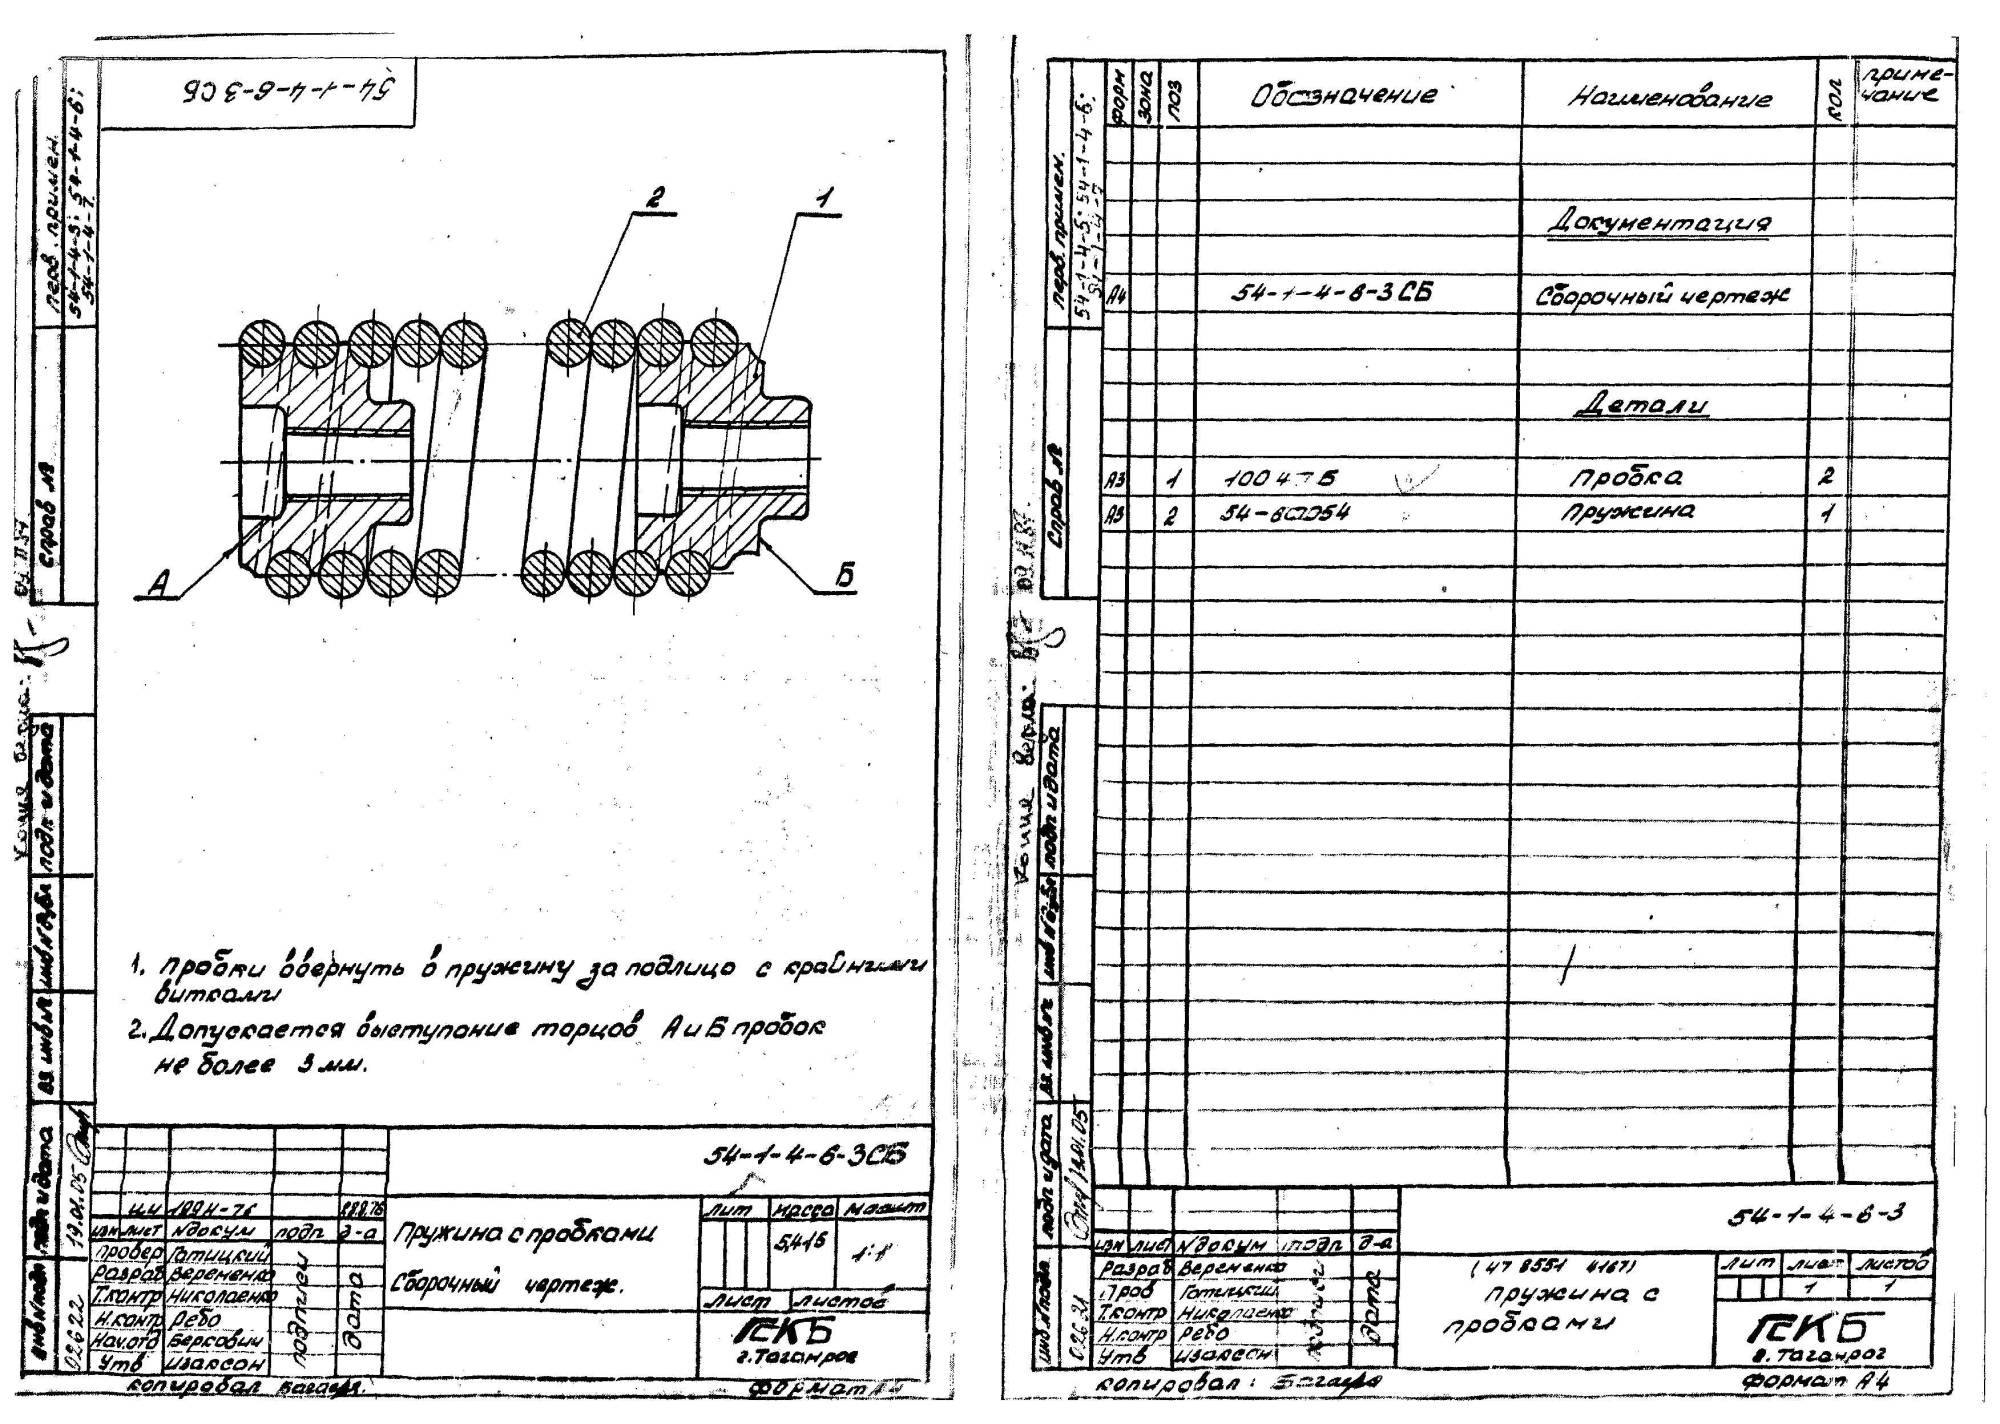 54-1-4-6-3СБ
перв. примен.
54-1-4-5; 54-1-4-6;
54-1-4-7
справ №
подп и дата
инв № дубл
вз. инв №
подп и дата
19.01.05
инв № подл
02622
2
1
А
Б
1. Пробки ввернуть в пружину за подлицо с крайними
витками
2. Допускается выступание торцов А и Б пробок
не более 3 мм.
54-1-4-6-3СБ
изм лист № докум подп д-а
провер Готицкий
Разраб Веременко
Т.контр Николаенко
Н.контр Ребо
Нач.отд Беркович
Утв Изаксон
подписи
дата
Пружина с пробками
Сборочный чертеж.
лит масса масшт
5,415 1:1
лист листов
ГСКБ
г.Таганрог
копировал
формат А4
перв. примен.
54-1-4-5; 54-1-4-6;
54-1-4-7
справ №
подп и дата
инв № дубл
вз. инв №
подп и дата
19.01.05
инв № подл
02621
форм зона поз Обозначение Наименование кол приме-
чание
Документация
А4 54-1-4-6-3СБ Сборочный чертеж
Детали
А3 1 Пробка 2
2 Пружина 1
54-1-4-6-3
изм лист № докум подп д-а
Разраб Веременко
Пров Готицкий
Т.контр Николаенко
Н.контр Ребо
Утв Изаксон
подписи
дата
(47 8551 4167)
Пружина с
пробками
лит лист листов
1 1
ГСКБ
г. Таганрог
копировал:
формат А4